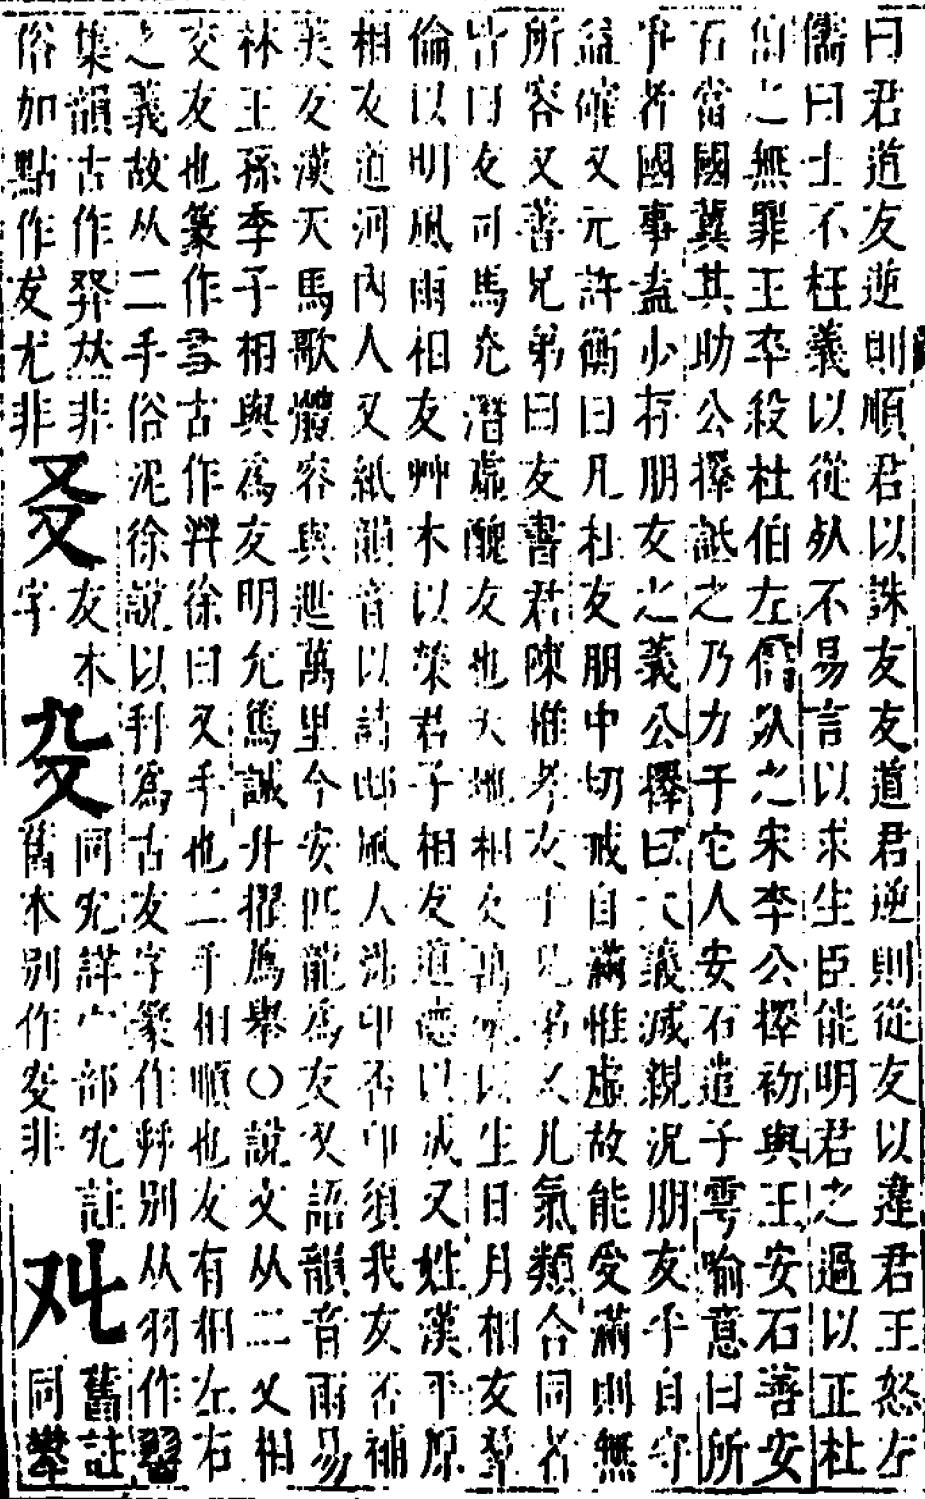 曰君道友逆則順君以誅友友道君逆則從友以違君王怒左
儒曰士不枉義以從死不易言以求生臣能明君之過以正杜
伯之無罪王卒殺杜伯左儒死之宋李公擇初與王安石善安
石當國冀其助公擇詆之乃力于它人安石遣子雱喻意曰所
爭者國事盍少存朋友之義公擇曰大義滅親況朋友乎自守
益確又元許衡曰凡杜友朋中切戒自滿惟虛故能受滿則無
所容又善兄弟曰友書君陳惟孝友于兄弟又凡氣類合同者
皆曰友司馬光潛虛醜友也天地相友萬彙以生日月相友羣
倫以明風雨相友艸木以榮君子相友道德以成又姓漢平原
相友道河內人又紙韻音以詩邶風人涉卬否卬須我友否補
美友漢天馬歌體容與迣萬里今安匹龍爲友又語韻音雨易
林王孫季子相與爲友明允篤誠升擢薦舉〇說文从二又相
交友也篆作㕛古作𦫵徐曰又手也二手相順也友有相左右
之義故从二手俗泥徐說以利爲古友字篆作艸別从羽作習
集韻古作𠬺𠦪非 友
俗加點作犮尤非
㕛 字
木
𠬸 同宄詳宀部宄註
舊本別作叏非
𠬢 舊註
同攀